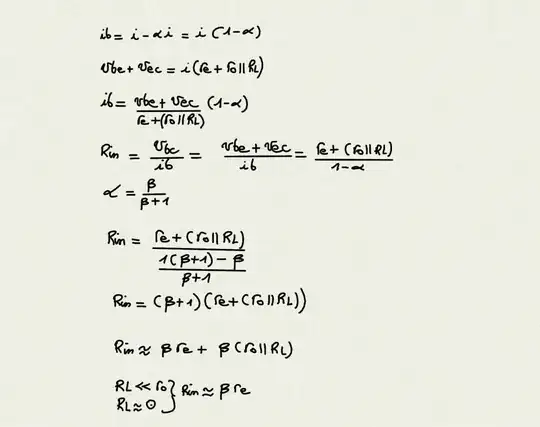 ib = i - αi = i (1-α)
vbe + vec = i(re + ro||RL)
ib = (vbe + vec)/(re+(ro||RL)) (1-α)
Rin = vbc/ib = (vbe + vec)/ib = (re + (ro||RL))/(1-α)
α = β/(β+1)
Rin = (re + (ro||RL))/((1(β+1) - β)/(β+1))
Rin = (β+1)(re+(ro||RL))
Rin ≈ βre + β(ro||RL)
RL << ro } Rin ≈ βre
RL ≈ 0